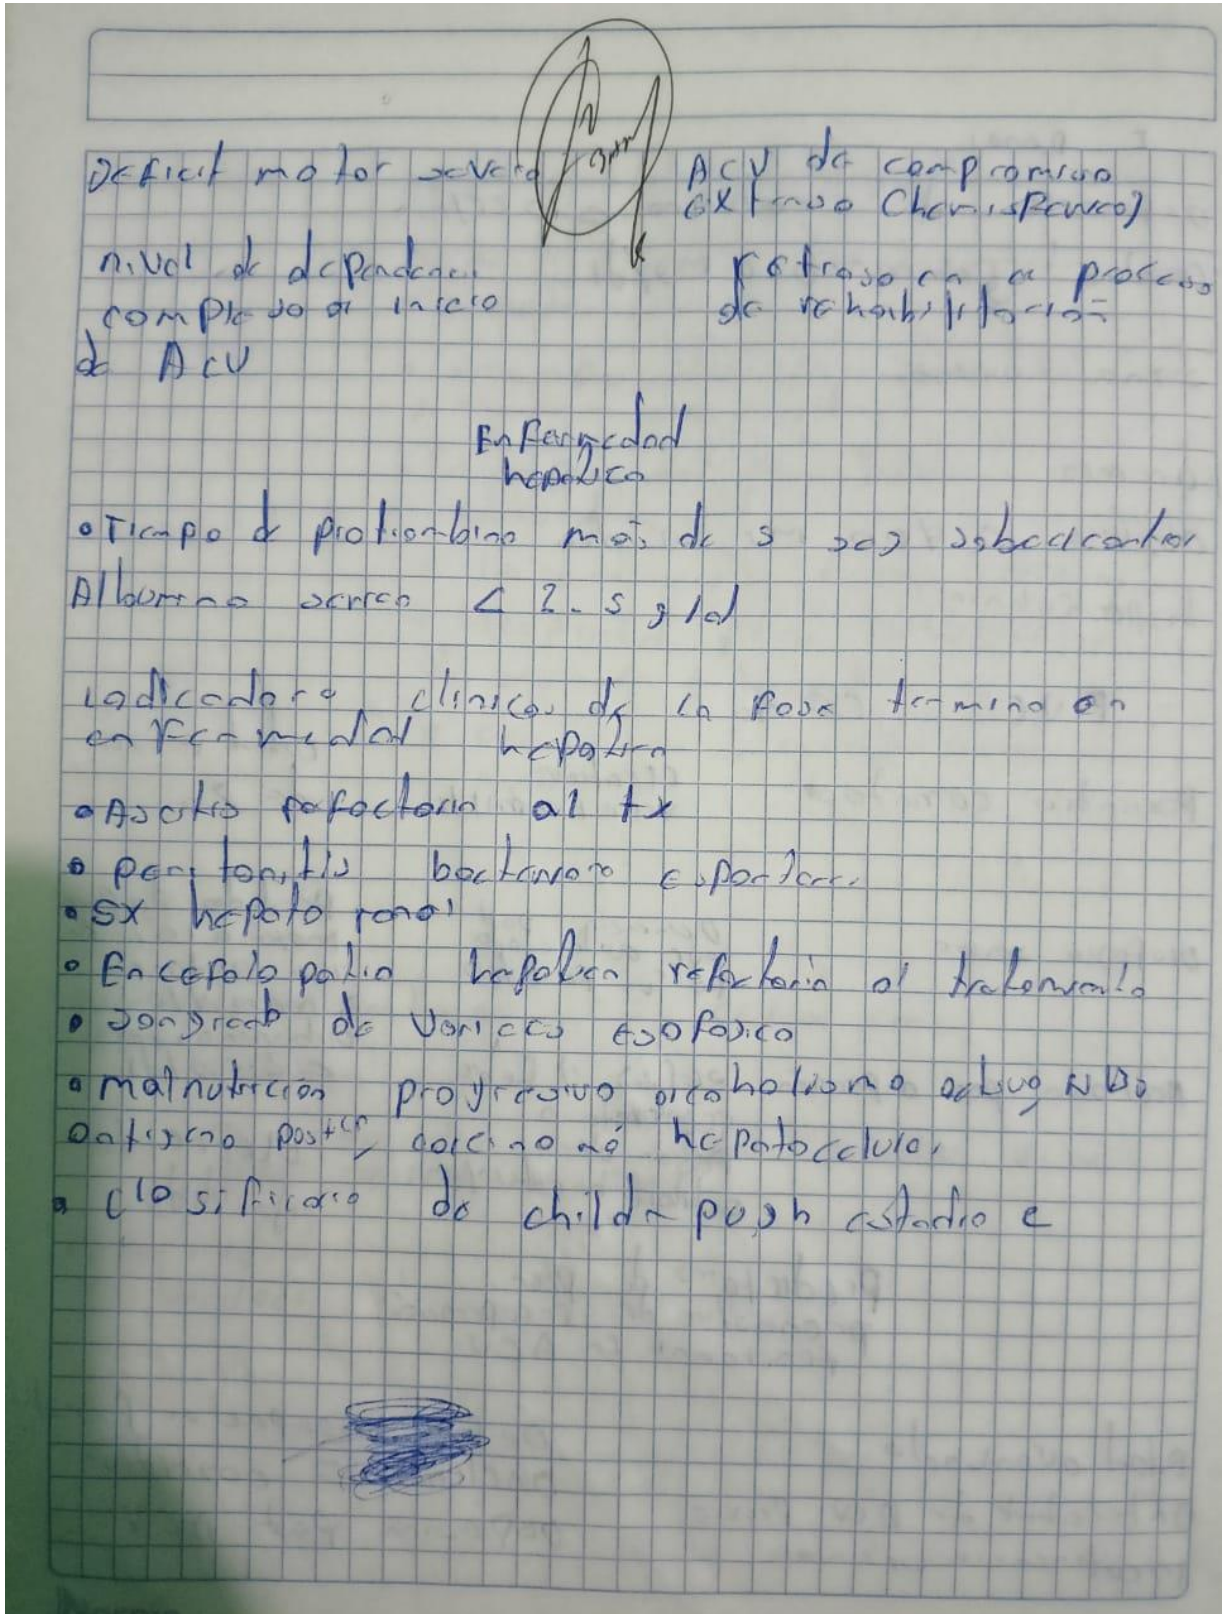 Deficit motor severo
ACV de compromiso
extenso (hemisferico)
nivel de dependencia
completo al inicio
de ACV
retraso en el proceso
de rehabilitacion
Enfermedad
hepatica
• Tiempo de protrombina mas de 5 seg sobre el control
Albumina serica < 2.5 g/dl
indicadores clinicos de la fase terminal en
enfermedad hepatica
• Ascitis refractaria al tx
• peritonitis bacteriana espontanea
• SX hepato renal
• Encefalopatia hepatica refractaria al tratamiento
• sangrado de varices esofagico
• malnutricion progresivo alcoholismo activo
antigeno positivo carcinoma hepatocelular
• clasificacio de child-pugh estadio c